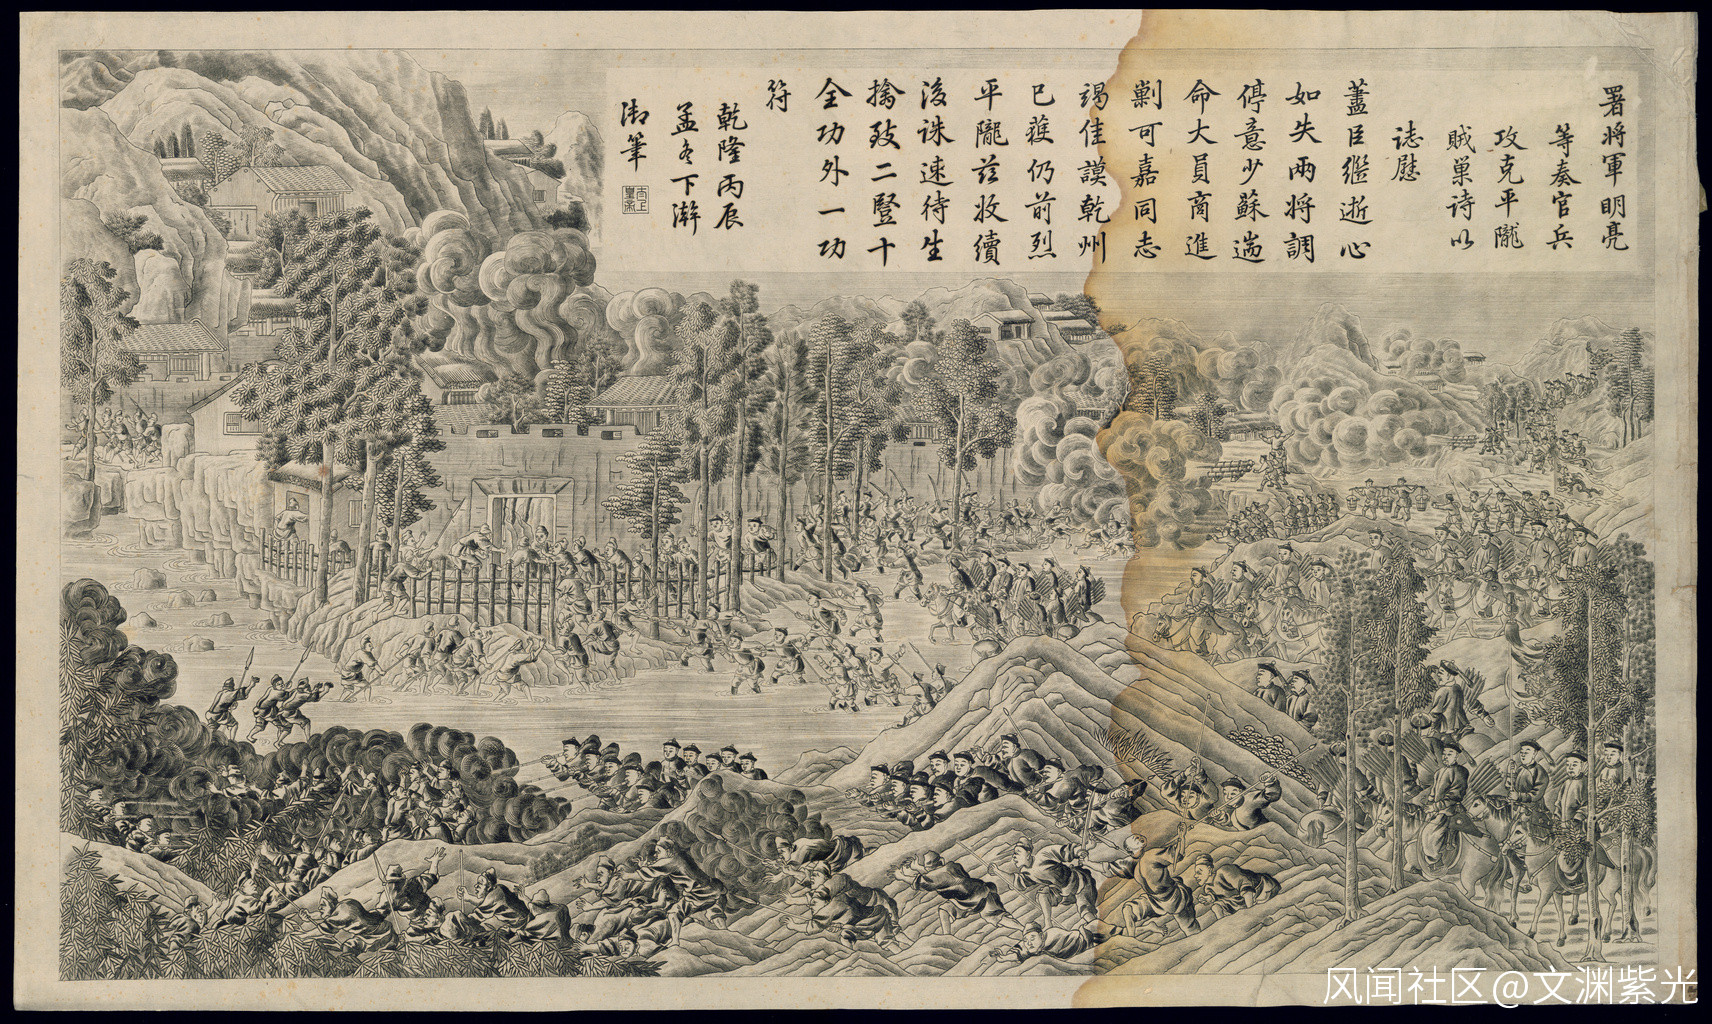 署將軍明亮
等奏官兵
攻克平隴
賊巢詩以
誌慰
藎臣繼逝心
如失兩將調
停意少蘇遄
命大員商進
剿可嘉同志
竭佳謨乾州
已獲仍前烈
平隴茲收續
後誅速待生
擒殘二豎十
全功外一功
符
乾隆丙辰
孟冬下澣
御筆
太上
皇帝
风闻社区@文渊紫光